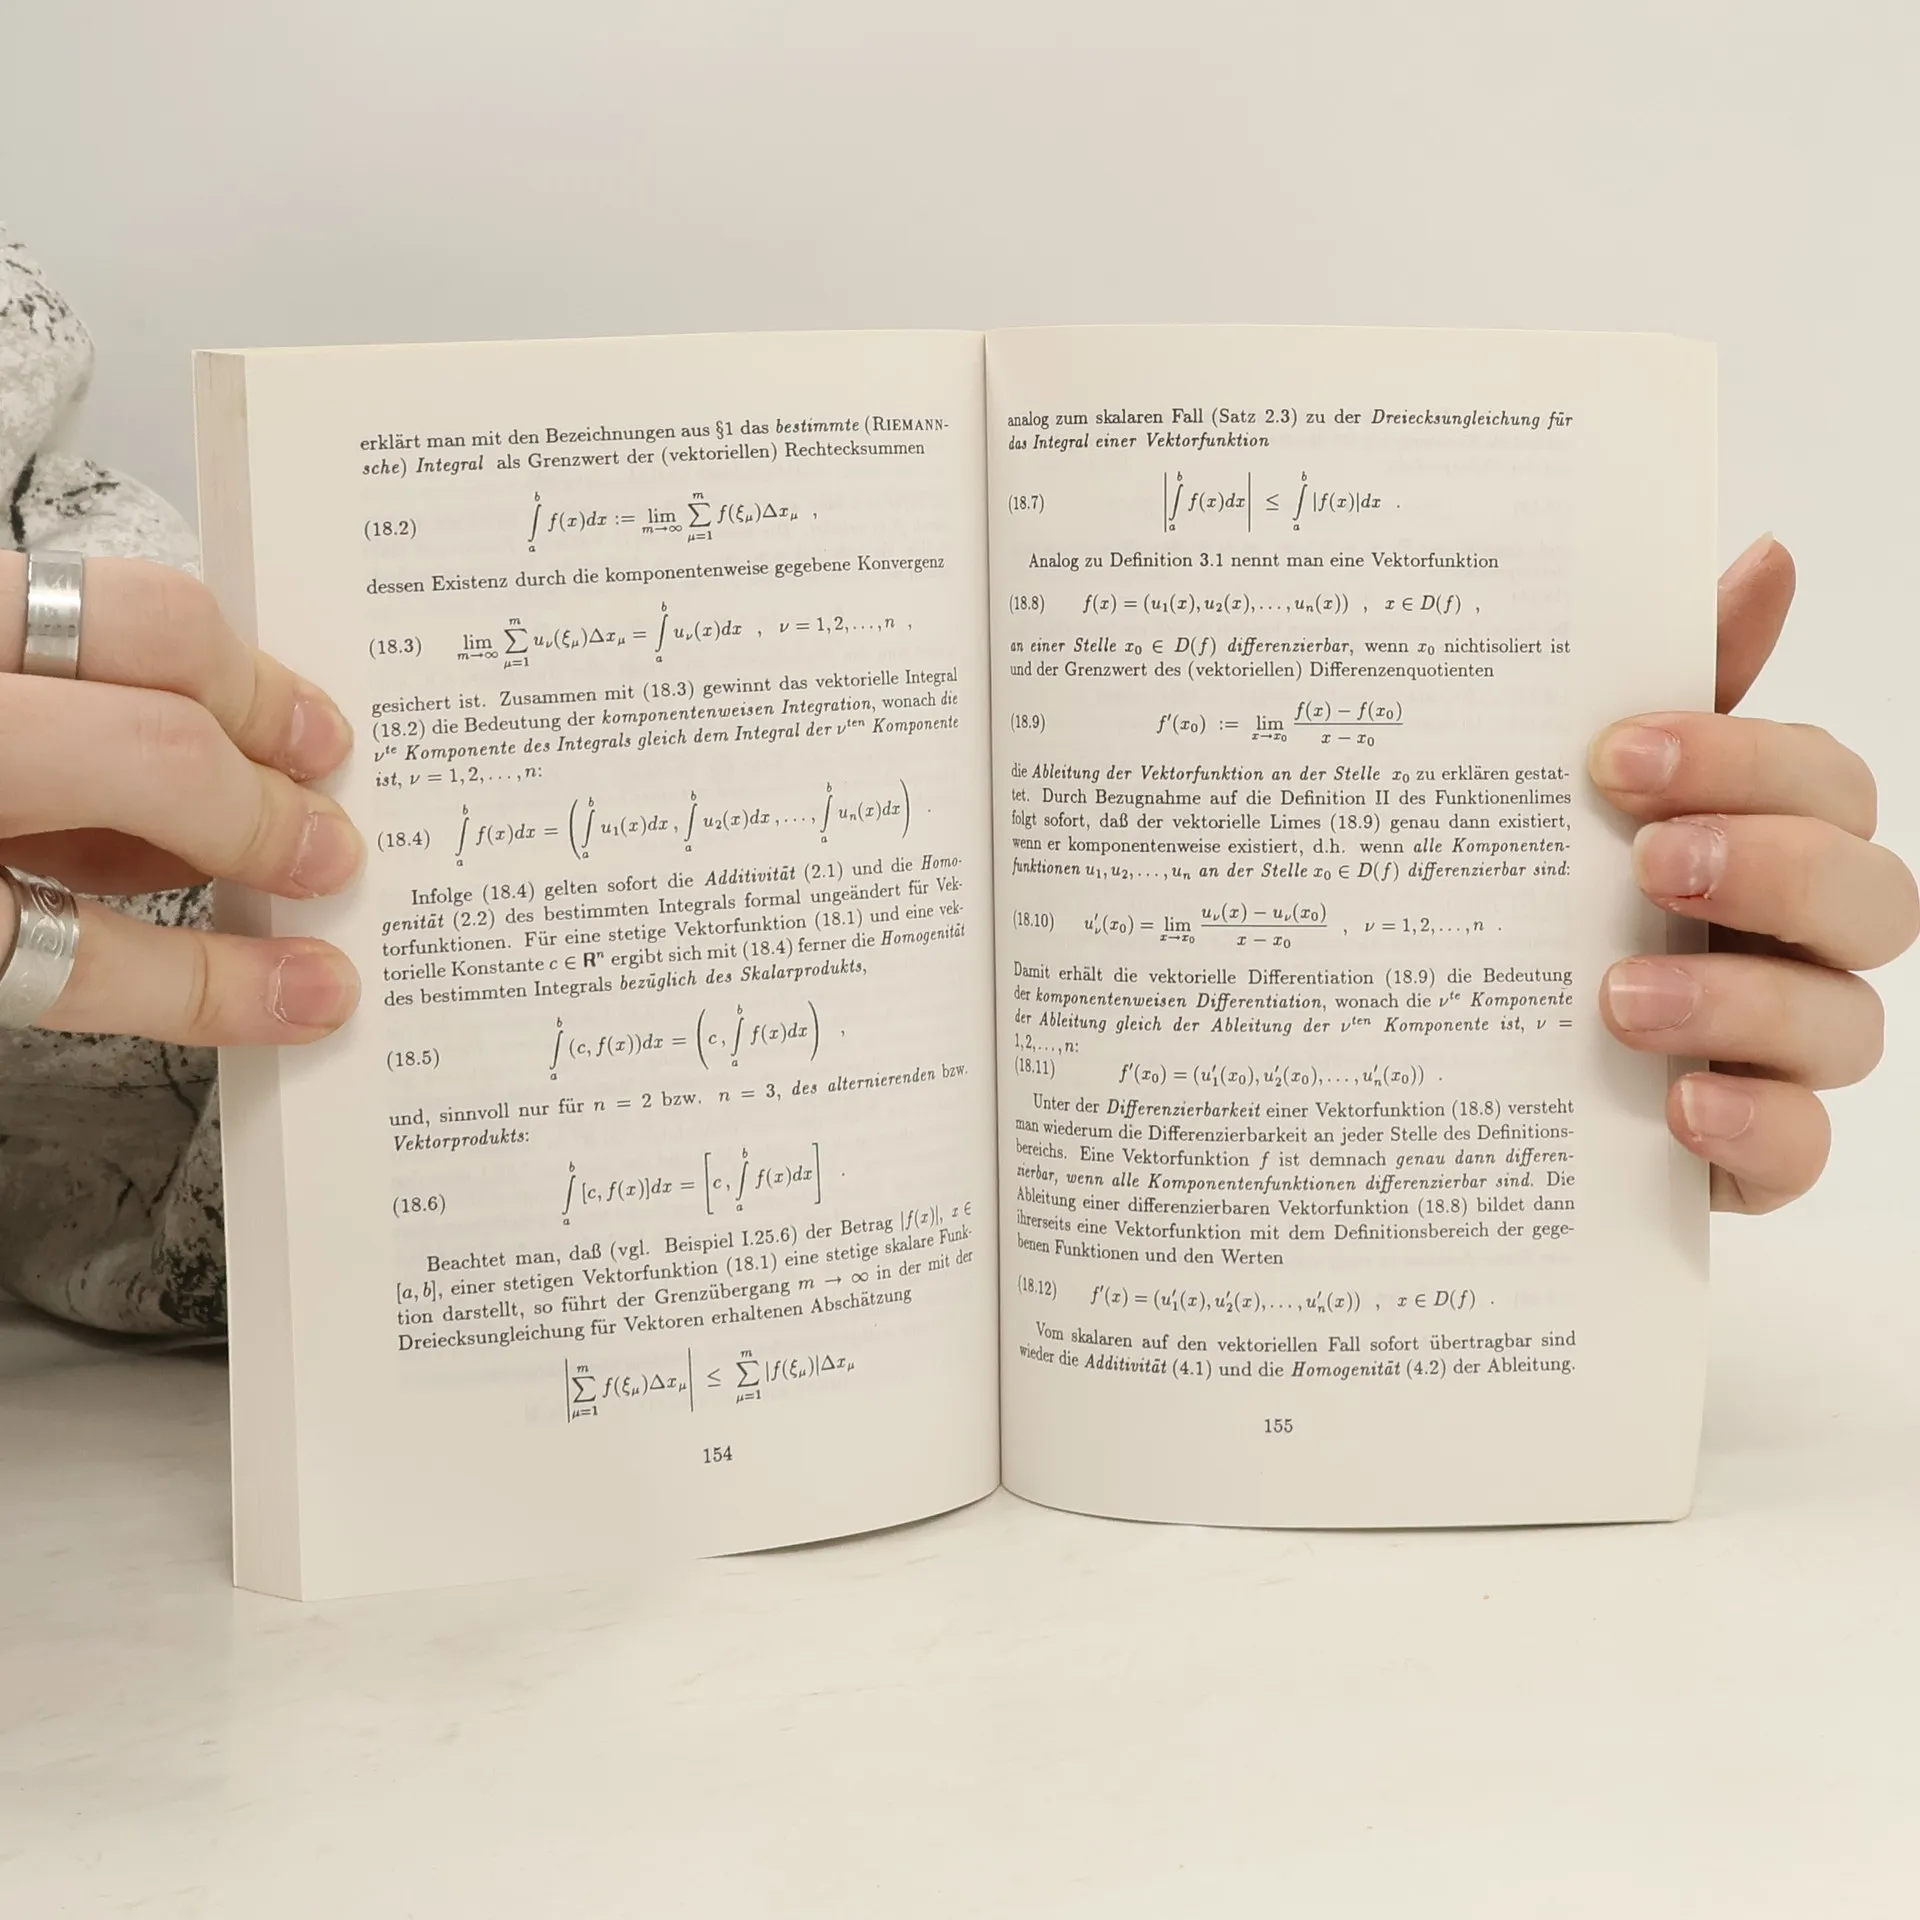 erklärt man mit den Bezeichnungen aus §1 das bestimmte (RIEMANN-
sche) Integral als Grenzwert der (vektoriellen) Rechtecksummen
(18.2) ∫_a^b f(x)dx := lim_{m→∞} ∑_{μ=1}^m f(ξ_μ)Δx_μ ,
dessen Existenz durch die komponentenweise gegebene Konvergenz
(18.3) lim_{m→∞} ∑_{μ=1}^m u_ν(ξ_μ)Δx_μ = ∫_a^b u_ν(x)dx , ν = 1,2,...,n ,
gesichert ist. Zusammen mit (18.3) gewinnt das vektorielle Integral
(18.2) die Bedeutung der komponentenweisen Integration, wonach die
ν^te Komponente des Integrals gleich dem Integral der ν^ten Komponente
ist, ν = 1,2,...,n:
(18.4) ∫_a^b f(x)dx = (∫_a^b u_1(x)dx, ∫_a^b u_2(x)dx,..., ∫_a^b u_n(x)dx) .
Infolge (18.4) gelten sofort die Additivität (2.1) und die Homo-
genität (2.2) des bestimmten Integrals formal ungeändert für Vek-
torfunktionen. Für eine stetige Vektorfunktion (18.1) und eine vek-
torielle Konstante c ∈ R^n ergibt sich mit (18.4) ferner die Homogenität
des bestimmten Integrals bezüglich des Skalarprodukts,
(18.5) ∫_a^b (c, f(x))dx = (c, ∫_a^b f(x)dx) ,
und, sinnvoll nur für n = 2 bzw. n = 3, des alternierenden bzw.
Vektorprodukts:
(18.6) ∫_a^b [c, f(x)]dx = [c, ∫_a^b f(x)dx] .
Beachtet man, daß (vgl. Beispiel I.25.6) der Betrag |f(x)|, x ∈
[a, b], einer stetigen Vektorfunktion (18.1) eine stetige skalare Funk-
tion darstellt, so führt der Grenzübergang m → ∞ in der mit der
Dreiecksungleichung für Vektoren erhaltenen Abschätzung
|∑_{μ=1}^m f(ξ_μ)Δx_μ| ≤ ∑_{μ=1}^m |f(ξ_μ)|Δx_μ
154
analog zum skalaren Fall (Satz 2.3) zu der Dreiecksungleichung für
das Integral einer Vektorfunktion
(18.7) |∫_a^b f(x)dx| ≤ ∫_a^b |f(x)|dx .
Analog zu Definition 3.1 nennt man eine Vektorfunktion
(18.8) f(x) = (u_1(x), u_2(x),..., u_n(x)) , x ∈ D(f) ,
an einer Stelle x_0 ∈ D(f) differenzierbar, wenn x_0 nichtisoliert ist
und der Grenzwert des (vektoriellen) Differenzenquotienten
(18.9) f'(x_0) := lim_{x→x_0} (f(x) − f(x_0))/(x − x_0)
die Ableitung der Vektorfunktion an der Stelle x_0 zu erklären gestat-
tet. Durch Bezugnahme auf die Definition II des Funktionenlimes
folgt sofort, daß der vektorielle Limes (18.9) genau dann existiert,
wenn er komponentenweise existiert, d.h. wenn alle Komponenten-
funktionen u_1, u_2,..., u_n an der Stelle x_0 ∈ D(f) differenzierbar sind:
(18.10) u'_ν(x_0) = lim_{x→x_0} (u_ν(x) − u_ν(x_0))/(x − x_0) , ν = 1,2,...,n .
Damit erhält die vektorielle Differentiation (18.9) die Bedeutung
der komponentenweisen Differentiation, wonach die ν^te Komponente
der Ableitung gleich der Ableitung der ν^ten Komponente ist, ν =
1,2,...,n:
(18.11) f'(x_0) = (u'_1(x_0), u'_2(x_0),..., u'_n(x_0)) .
Unter der Differenzierbarkeit einer Vektorfunktion (18.8) versteht
man wiederum die Differenzierbarkeit an jeder Stelle des Definitions-
bereichs. Eine Vektorfunktion f ist demnach genau dann differen-
zierbar, wenn alle Komponentenfunktionen differenzierbar sind. Die
Ableitung einer differenzierbaren Vektorfunktion (18.8) bildet dann
ihrerseits eine Vektorfunktion mit dem Definitionsbereich der gege-
benen Funktionen und den Werten
(18.12) f'(x) = (u'_1(x), u'_2(x),..., u'_n(x)) , x ∈ D(f) .
Vom skalaren auf den vektoriellen Fall sofort übertragbar sind
wieder die Additivität (4.1) und die Homogenität (4.2) der Ableitung.
155